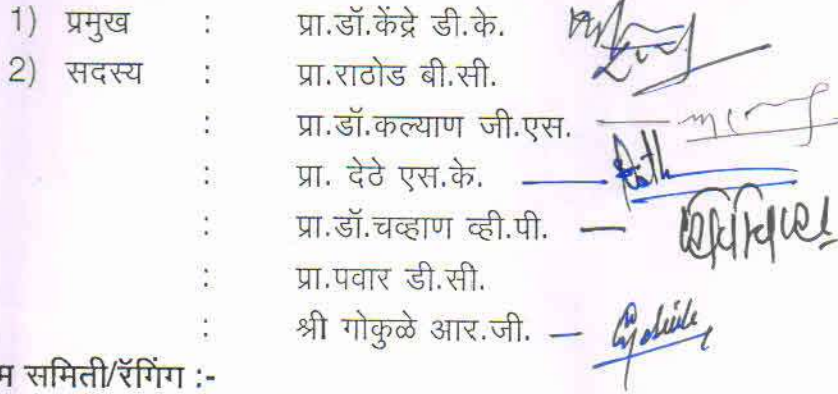 1) प्रमुख : प्रा.डॉ.केंद्रे डी.के.
2) सदस्य : प्रा.राठोड बी.सी.
: प्रा.डॉ.कल्याण जी.एस. —
: प्रा. देठे एस.के. —
: प्रा.डॉ.चव्हाण व्ही.पी. —
: प्रा.पवार डी.सी.
: श्री गोकुळे आर.जी. —
म समिती/रॅगिंग :-